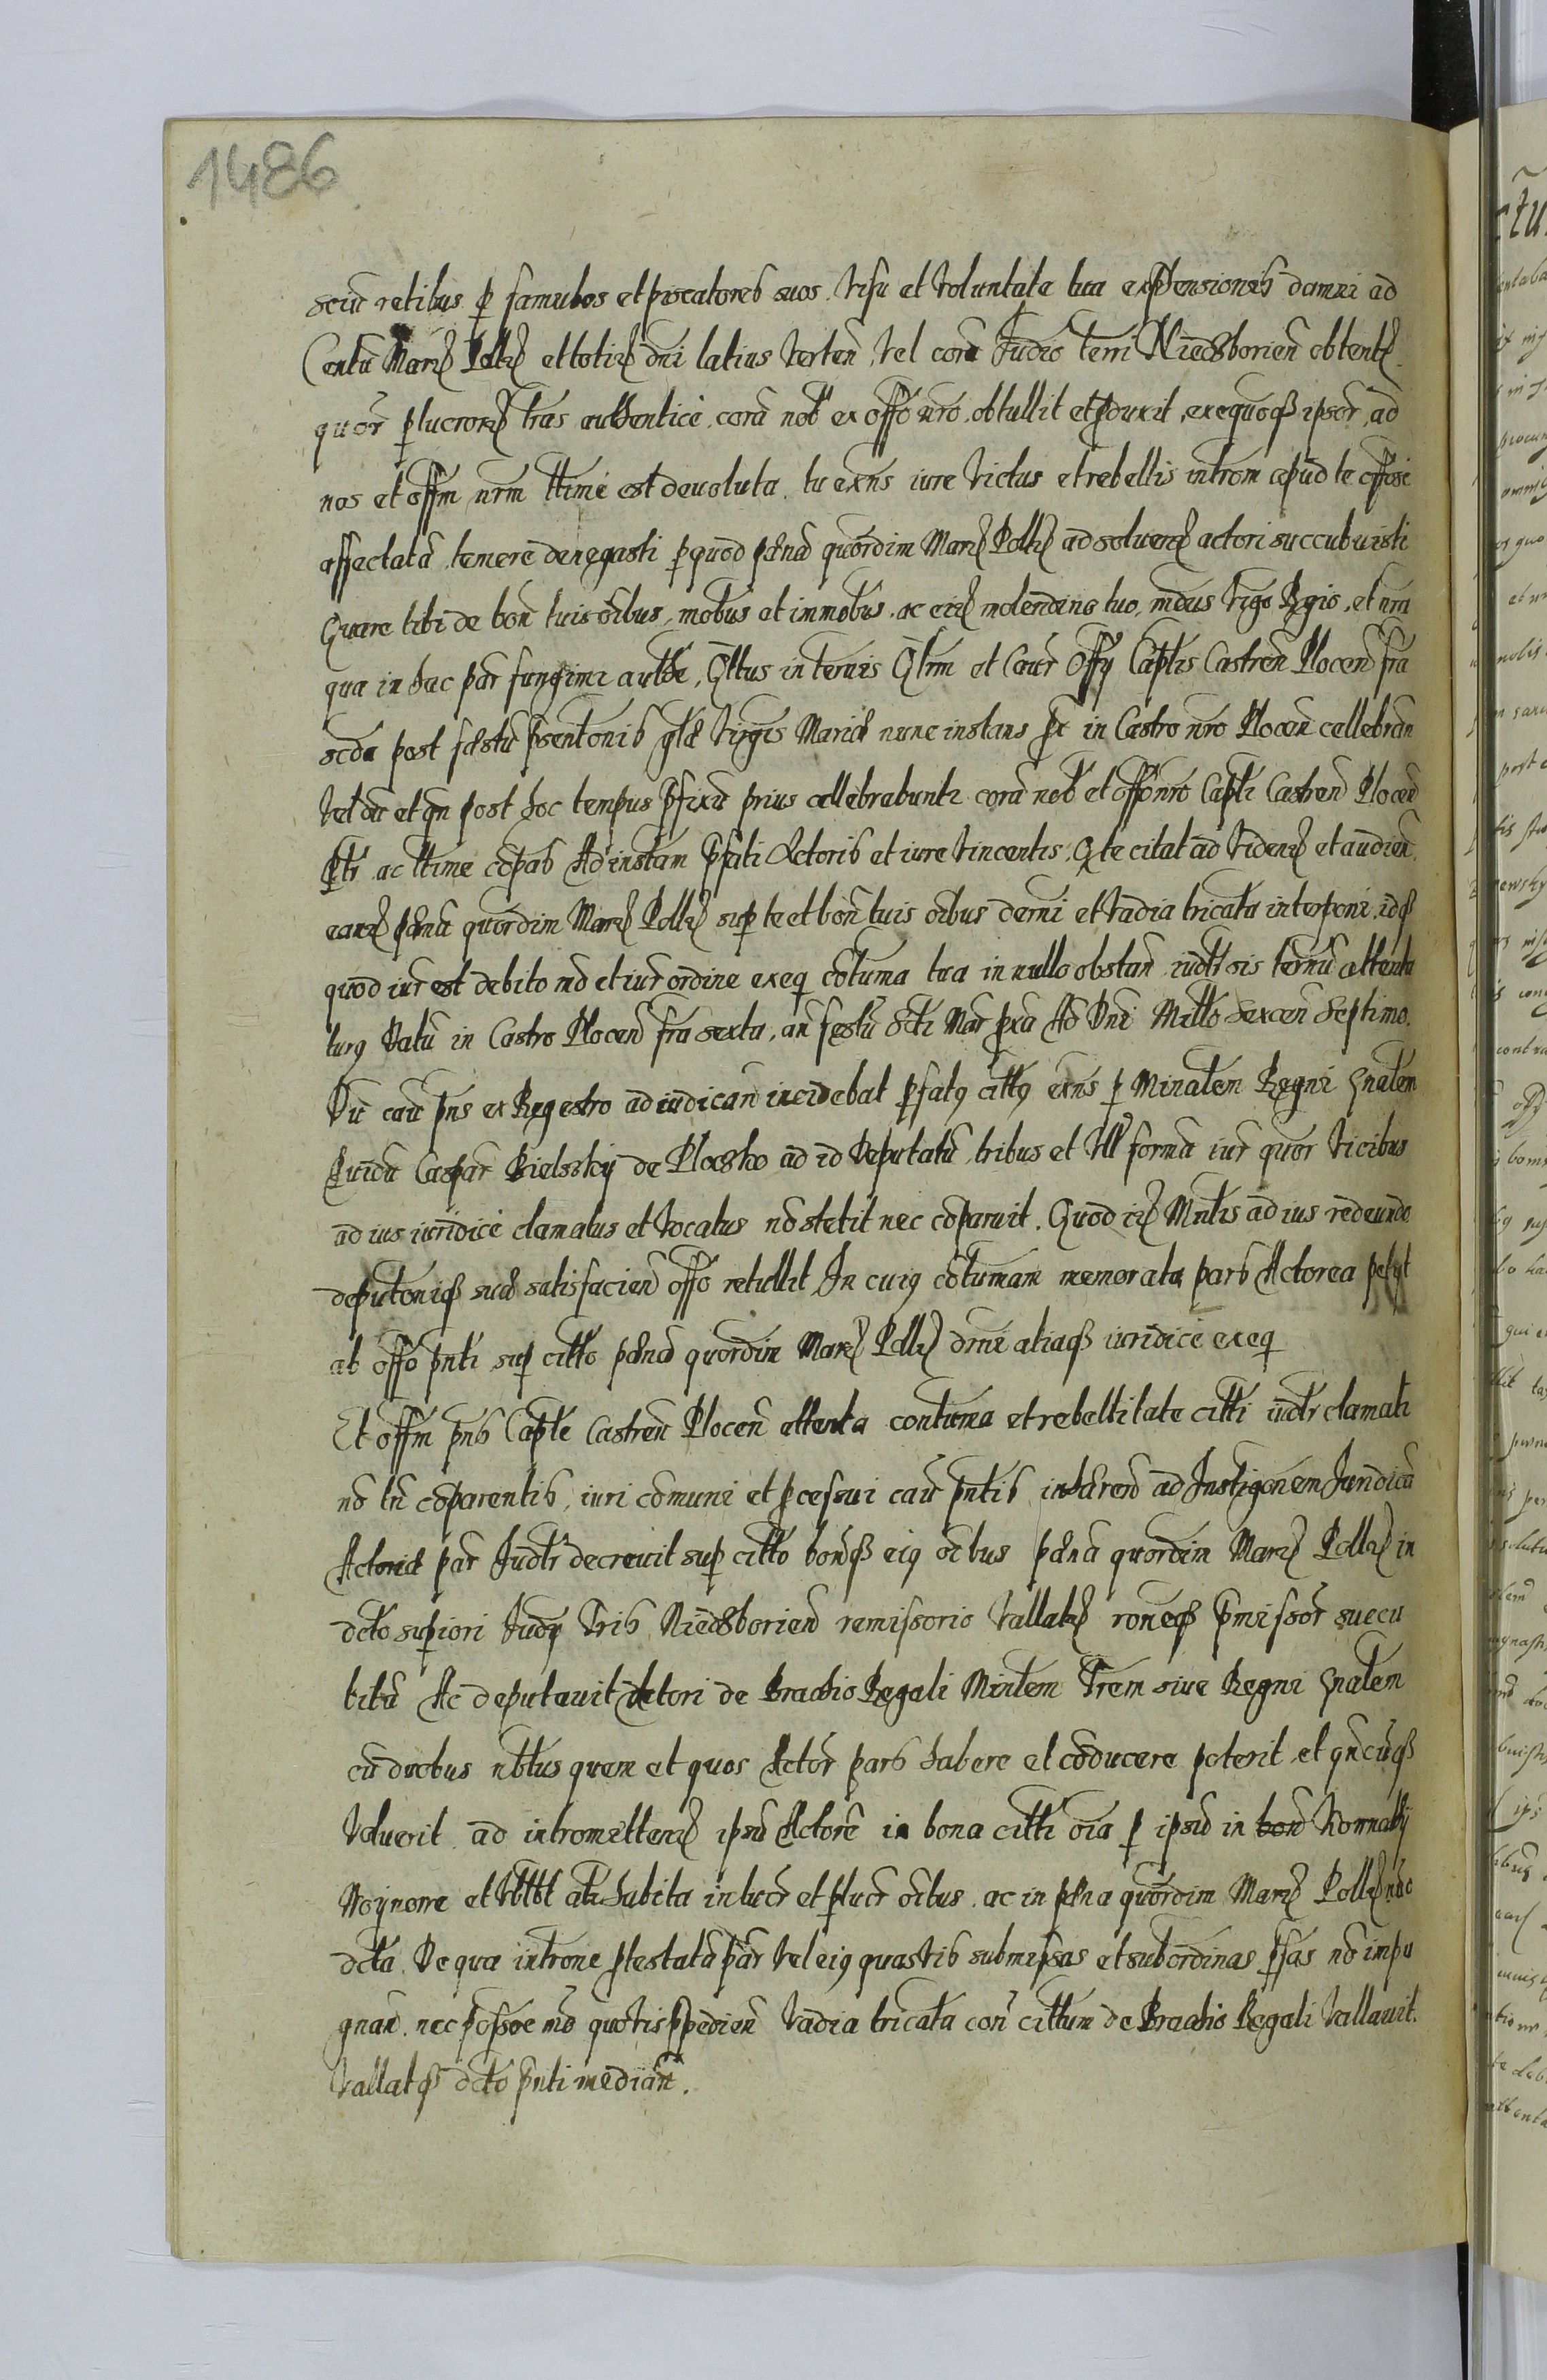 1486
sciu retibus p famulos et piscatores suos. visu et voluntate tua expensionis damni ad
Centu Marz Pollz et totiz dni latius verten, vel cora Judio terri Niedsborien obtentz
quor plucrorz tras authentice, cora nob ex offo nro. obtullit et pduxit, exequoq ipsor, ad
nos et offm nrm ttime est devoluta. tu exns iure victus et rebellis introm apud te offose
affectata temere denegasti p quod paena quordim Marz Pollz ad solvenz actori succubuisti
Quare tibi de bon tuis oibus, mobus et immobus. ac eiz molendino tuo, mdus vigo Regio, et nra
qua in hac par fungimr authe, Qttus in termis Qlrm et Caur Offy Captis Castren Plocen fra
scda post festu psentonis glae virgis Mariae nunc instans pt in Castro nro Plocen cellebran
vel du et qn post hoc tempus pfixu prius cellebrabuntr cora nob et offo nro Capti Castren Plocen
Ptr ac ttime copas Ad instam pfati Actoris et iure vincentis, Q te citat ad videnz et audien
eanz paena quordim Marz Pollz sup te et bon tuis oibus derni et vadia tricata interponi, idq
quod iur est debito md et iur ordine exeq cotuma tua in nullo obstan iudtr sis termu attenta
turg Datu in Castro Plocen fra sexta, an festu Scti Mar pxa Ad Dni Millo Sexcen Septimo.
Du cau pns ex Regestro ad iudican incidebat pfatg cittg exns p Minalem Regni gnalem
Puidu Caspar Bielsky de Plocsko ad id deputatu, tribus et ult forma iur quor vicibus
ad ius iuridice clamatus et vocatus no stetit nec coparuit. Quod iz Mntis ad ius redeundo
deputoniq suae satisfacien offo retullit In cuig cotumam memorata pars Actorea petyt
ab offo pnti sup citto paena quordim Marz Pollz drni aliaq iuridice exeq
Et offm pns Captle Castren Plocen attenta contuma et rebellitate citti iudtr clamati
no tn coparentis, iuri comuni et pcessui caur pntis inhaeren ad Instigonem Juridica
Actoreae par Judtr decrevit sup citto bonq eig oibus paena quordim Marz Pollz in
dcto supiori Judy Tris Niedsborien remissorio vallatz roneq pmissor succu
bitu Ac deputavit Actori de Brachio Regali Mintem Trem sive Regni gnalem
cu duobus nblus quem et quos Actor pars habere et coducere poterit et qncunq
voluerit. ad intromittenz ipsu Actore in bona citti oia p ipsu in
et ubtbt habita in lucr et plucr oibus. ac in paena quordim Marz Pollz
dcta. De qua introne ptestata par vel eig quasvis submissas et subordinas psas no impu
gnan. nec possoe mo quovis ppedien vadia tricata con cittum de Brachio Regali vallavit.
Vallatq dcto pnti median.